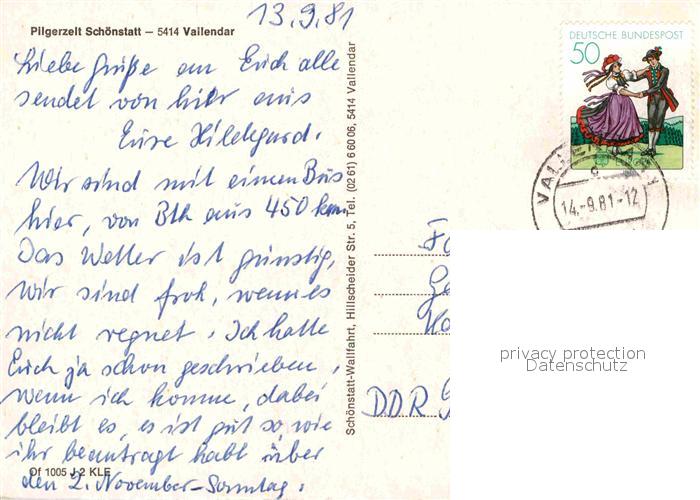 13.9.81
Pilgerzelt Schönstatt – 5414 Vallendar
Liebe Grüße an Euch alle
sendet von hier aus
Eure Hildegard.
Wir sind mit einem Bus
hier, von Bth aus 450 km.
Das Wetter ist günstig,
wir sind froh, wenn es
nicht regnet. Ich hatte
Euch ja schon geschrieben,
wenn ich komme, dabei
bleibt es, es ist gut so, wie
ihr beantragt habt über
den 2. November-Sonntag.
Of 1005 J 2 KLE
Schönstatt-Wallfahrt, Hillscheider Str. 5, Tel. (02 61) 6 60 06, 5414 Vallendar
DEUTSCHE BUNDESPOST
50
14.-9.81-12
DDR
privacy protection
Datenschutz